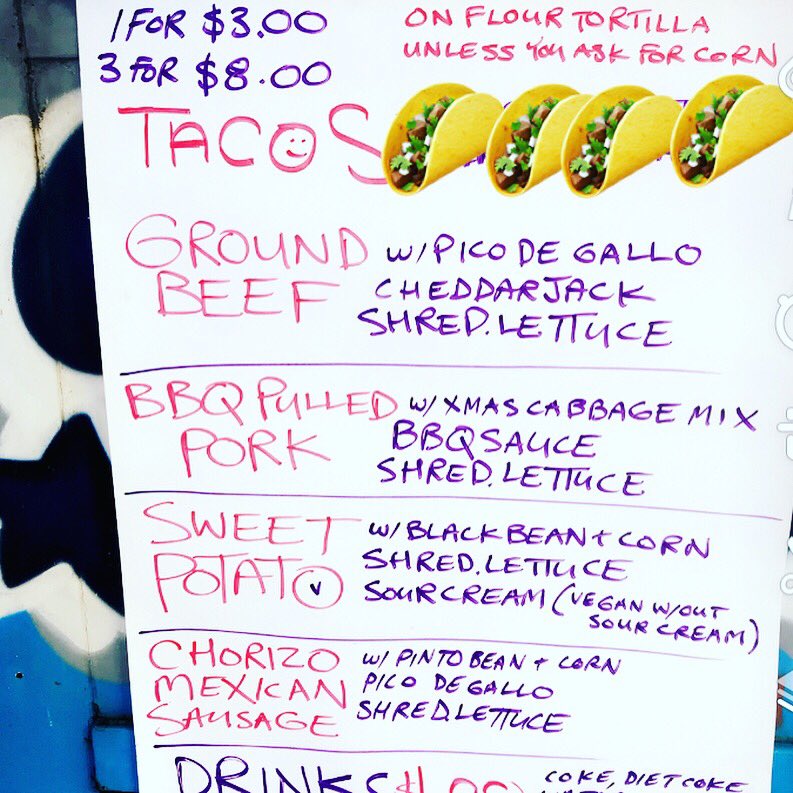 1 FOR $3.00
3 FOR $8.00
ON FLOUR TORTILLA
UNLESS YOU ASK FOR CORN
TACOS
GROUND
BEEF
W/ PICO DE GALLO
CHEDDARJACK
SHRED. LETTUCE
BBQ PULLED
PORK
W/ XMAS CABBAGE MIX
BBQ SAUCE
SHRED. LETTUCE
SWEET
POTATO
V
W/ BLACK BEAN + CORN
SHRED. LETTUCE
SOUR CREAM (VEGAN W/OUT
SOUR CREAM)
CHORIZO
MEXICAN
SAUSAGE
W/ PINTO BEAN + CORN
PICO DE GALLO
SHRED. LETTUCE
DRINKS
COKE, DIET COKE